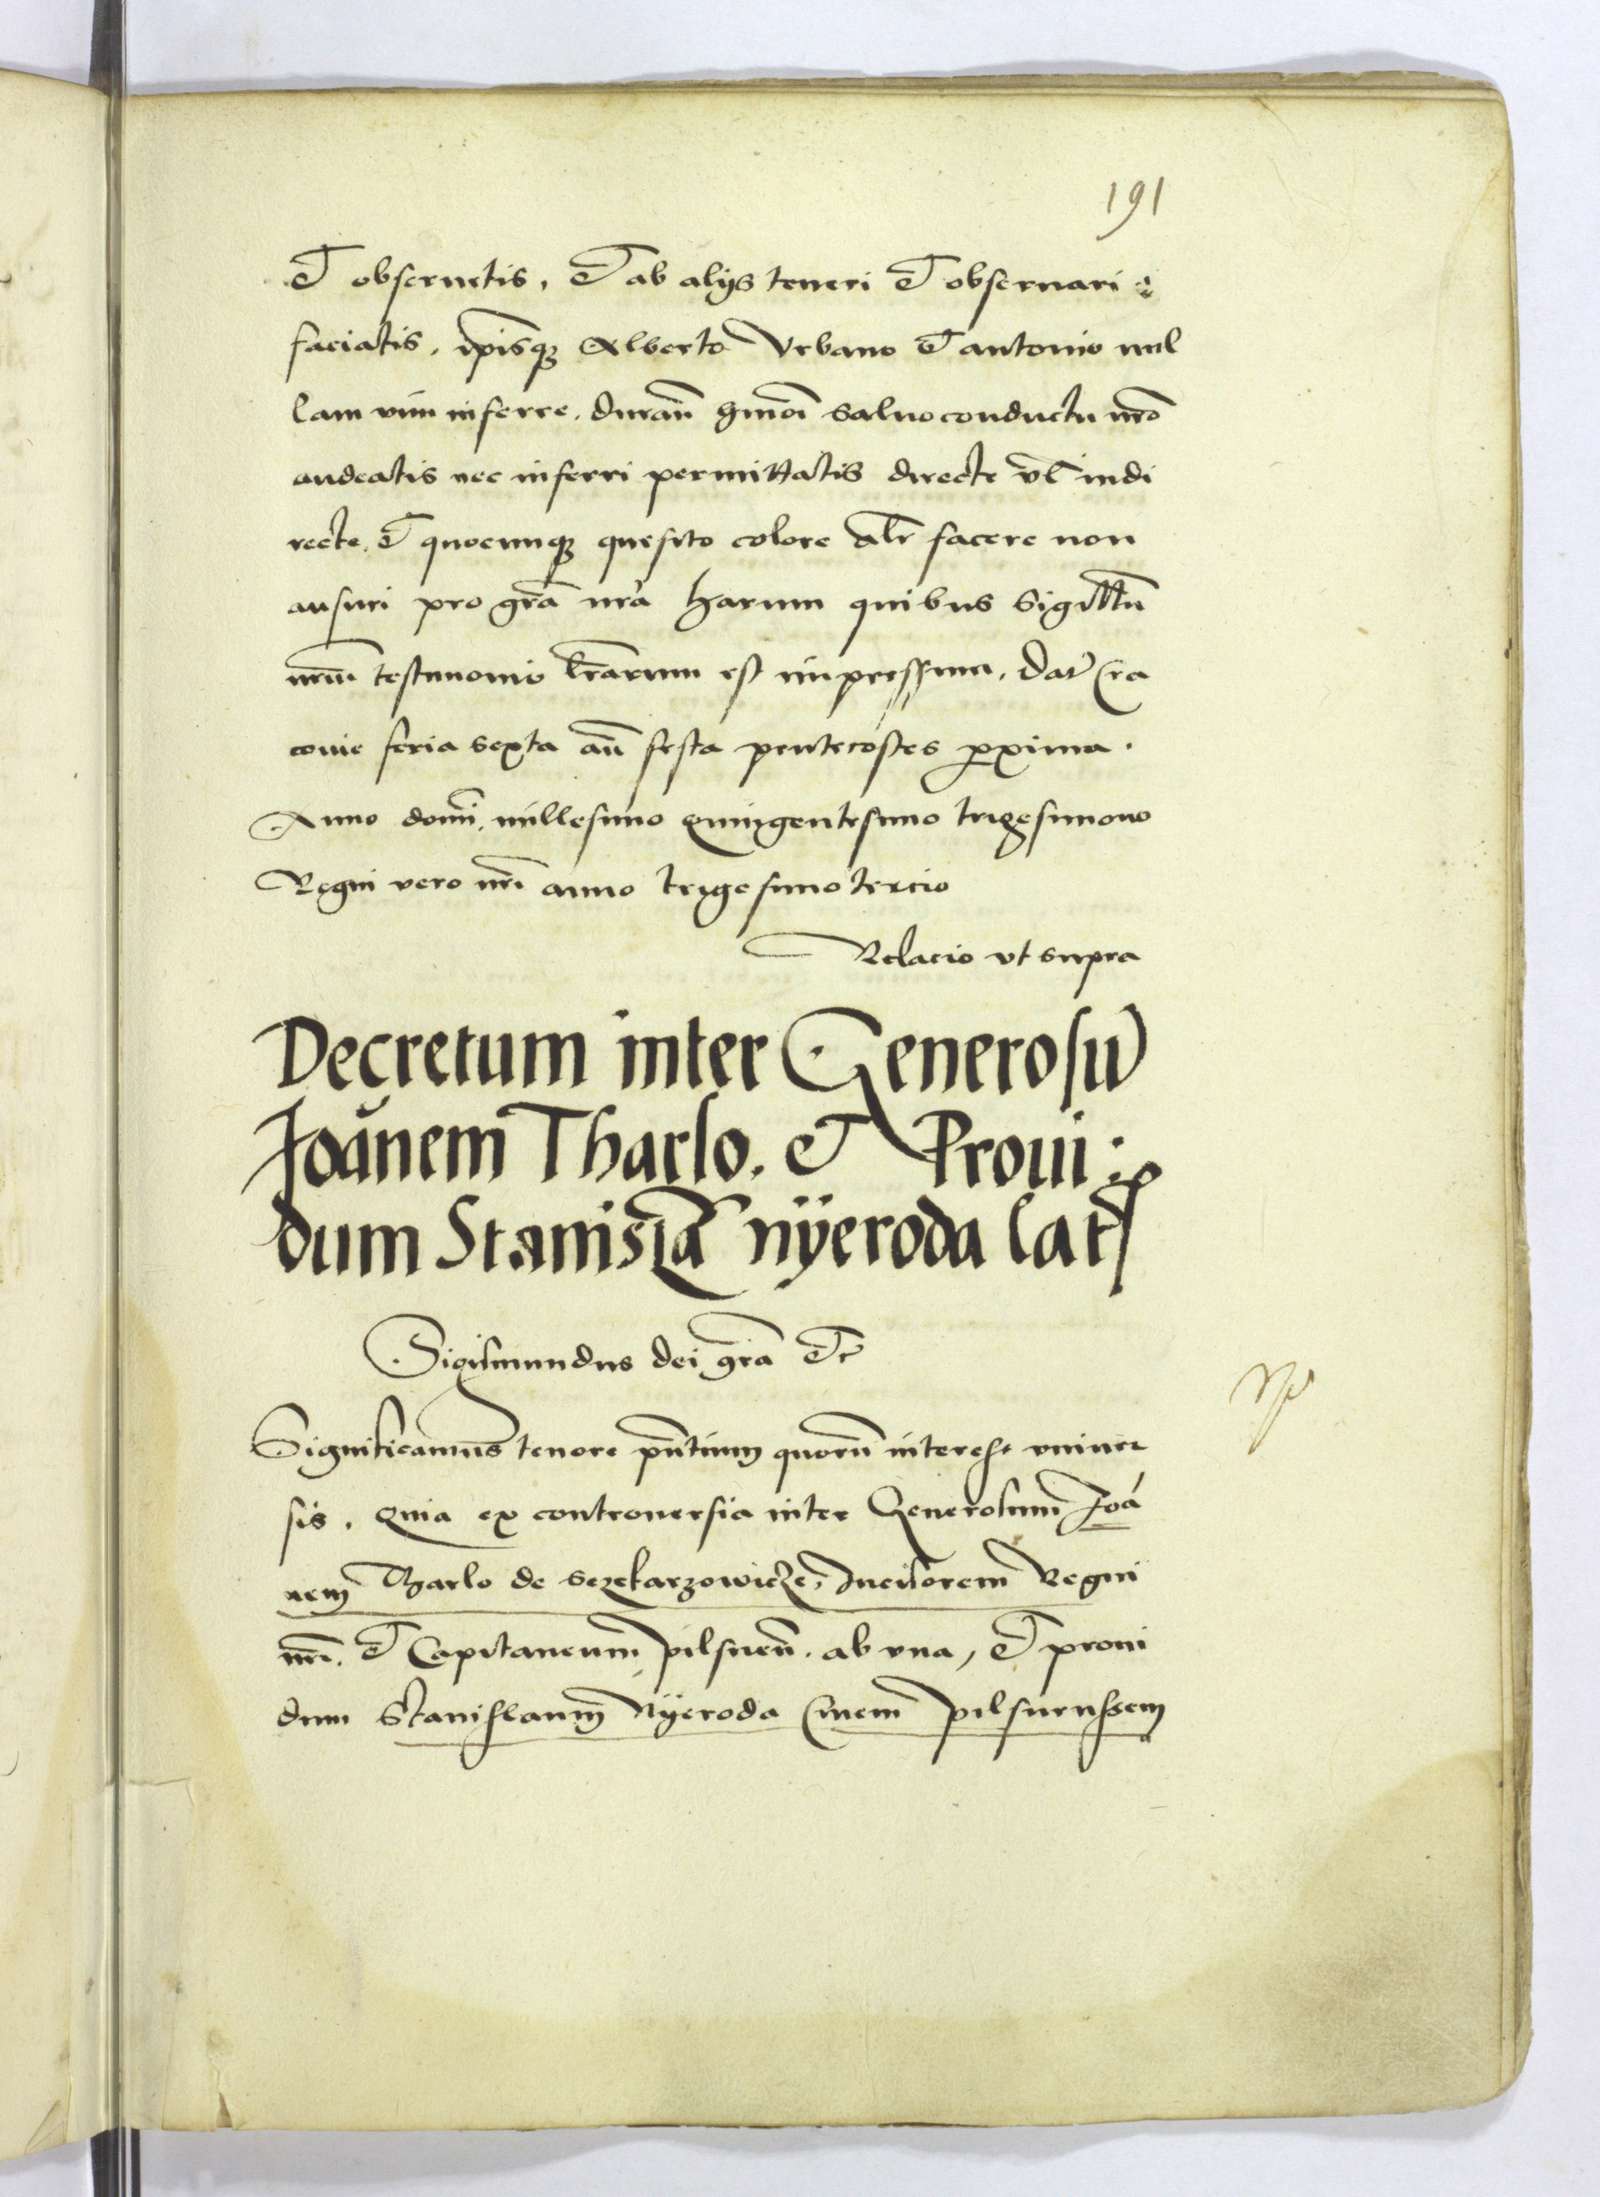 191
Et obseruetis, Et ab alijs teneri Et obseruari
faciatis, ip̄isq3 Alberto Vrbano Et antonio nul
lam vim inferre, duran̄ hmōi saluoconductu nr̄o
audeatis nec inferri permittatis directe vl̄ indi
recte, Et quocumq3 quesito colore alr̄ facere non
ausuri pro gr̄a nr̄a harum quibus Sigillū
nr̄m̄ testimonio lr̄arum est impressum, Dat̄ Cra
couie feria sexta an̄ festa pentecostes proxima.
Anno domī. millesimo Quingentesimo trigesimono
Regni vero nr̄i anno trigesimo tercio
Relacio vt supra
Decretum inter Generosū
Joānem Tharlo. et Proui:
dum Stanislā nÿeroda lat
Sigismundus dei gr̄a Etc̄
Significamus tenore pn̄tium quorū interest vniuer
sis, Quia ex controuersia inter Generosum Joā
nem Tharlo de Sczekarzowicze, Inc̄isorem Regni
nr̄i. Et Capitaneum pilsnen̄. ab vna, Et proui
dum Stanislaum Nÿeroda Ciuem pilsnensem